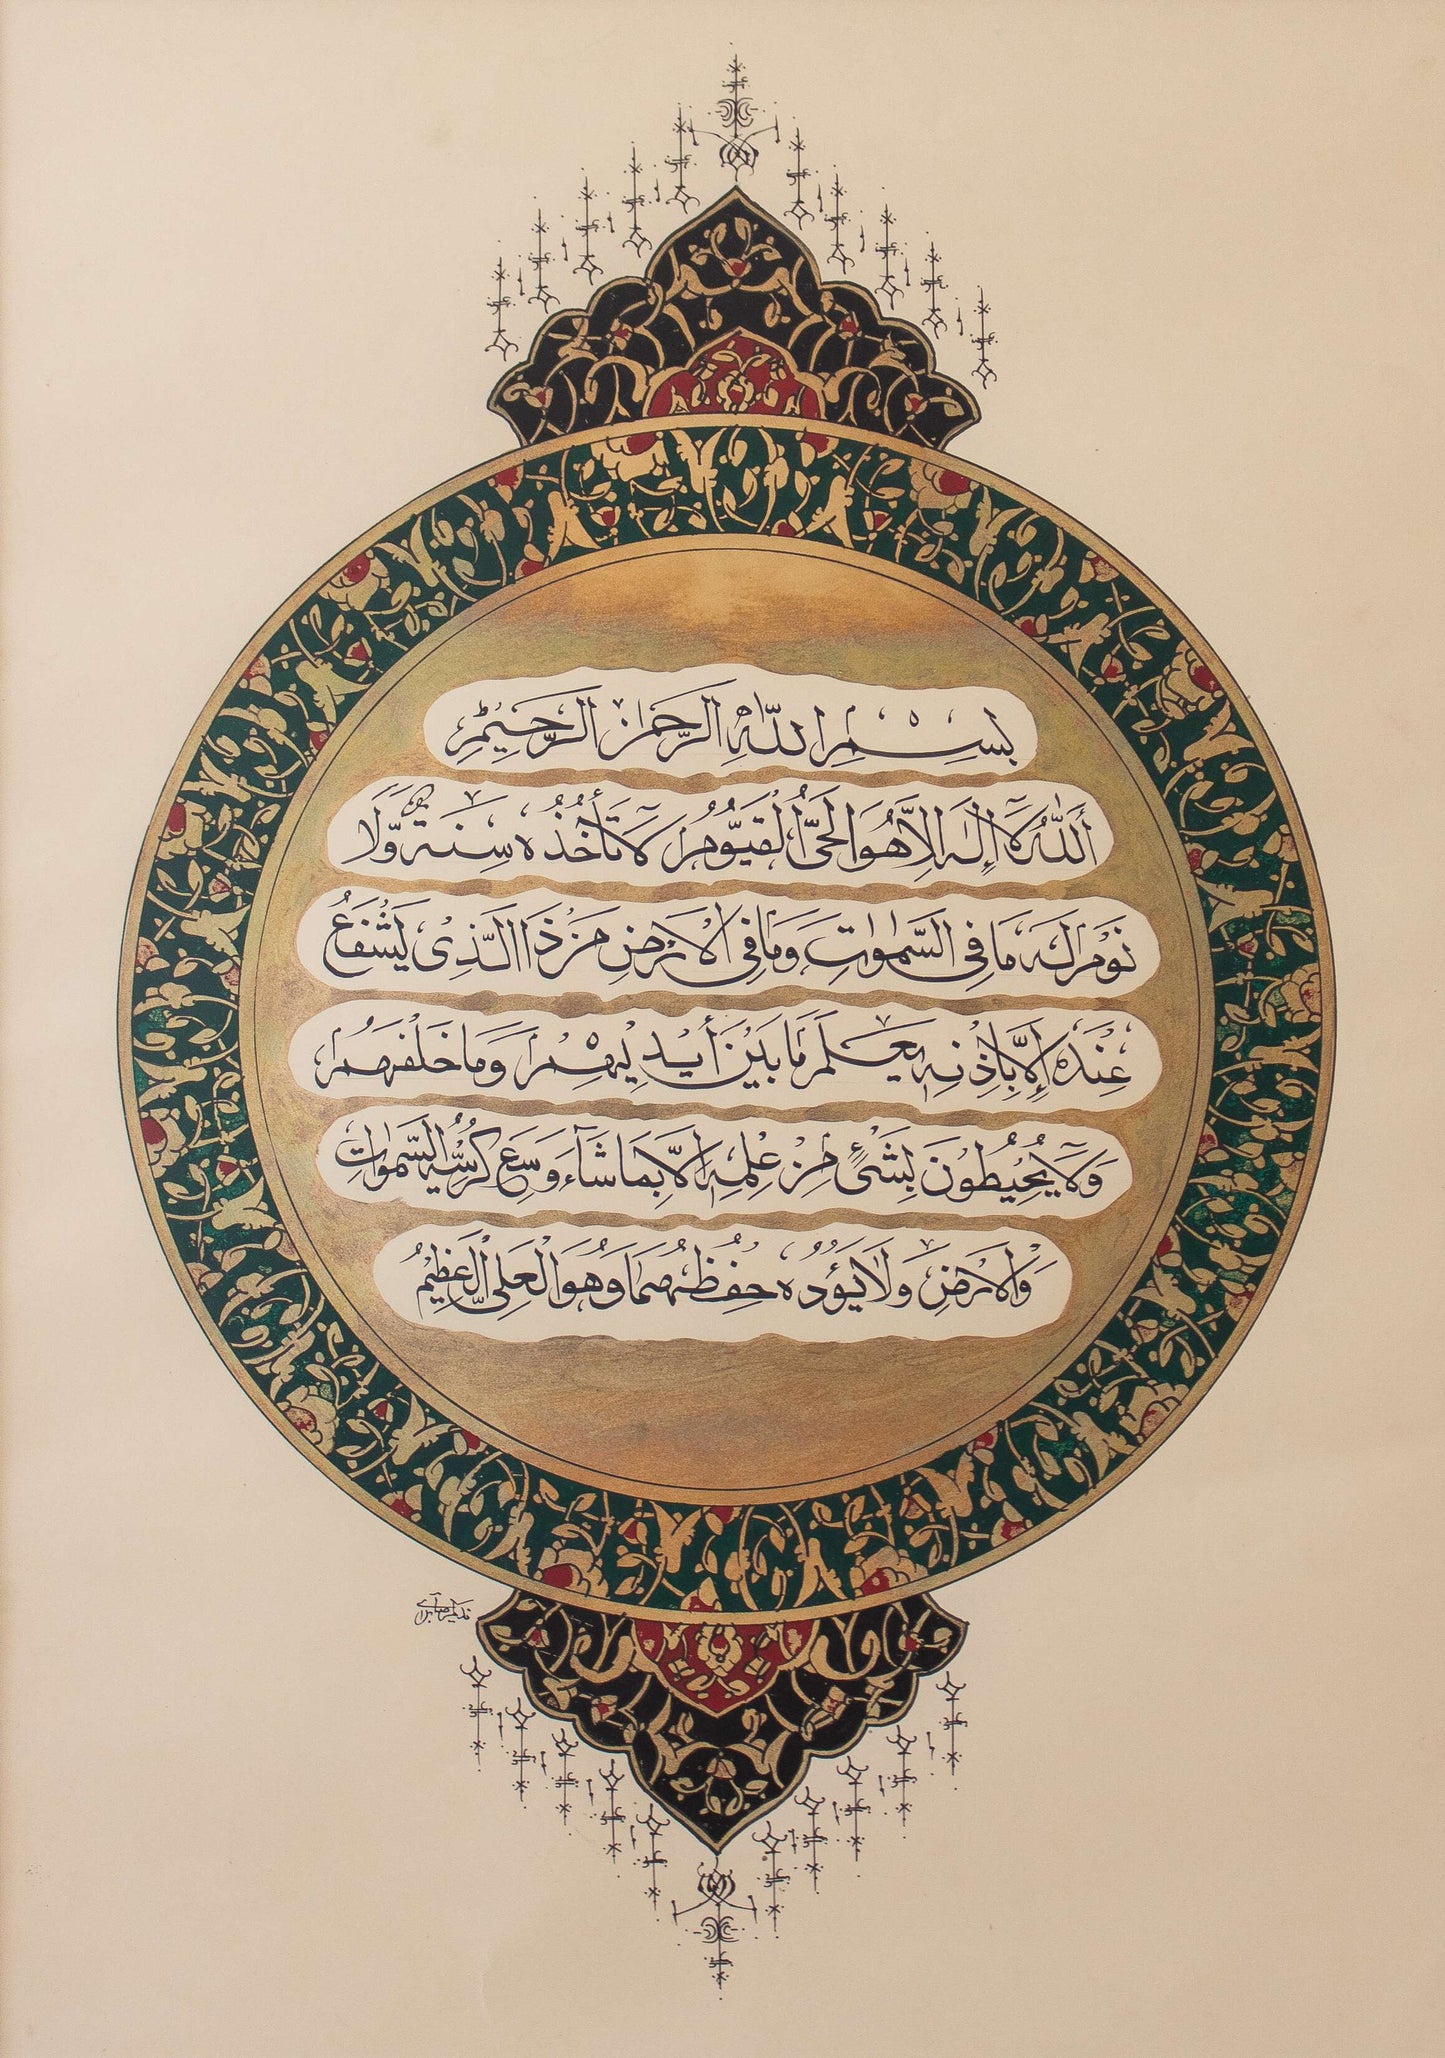 بِسْمِ اللّٰهِ الرَّحْمٰنِ الرَّحِيْمِ
اَللّٰهُ لَآ إِلٰهَ اِلَّا هُوَ الْحَیُّ الْقَيُّوْمُ لَا تَأْخُذُهُ سِنَةٌ وَّلَا
نَوْمٌ لَهُ مَا فِی السَّمٰوَاتِ وَمَا فِی الْاَرْضِ مَنْ ذَا الَّذِیْ يَشْفَعُ
عِنْدَهُ إِلَّا بِاِذْنِهٖ يَعْلَمُ مَا بَيْنَ أَيْدِيْهِمْ وَمَا خَلْفَهُمْ
وَلَا يُحِيْطُوْنَ بِشَیْءٍ مِنْ عِلْمِهٖ اِلَّا بِمَا شَآءَ وَسِعَ كُرْسِيُّهُ السَّمٰوَاتِ
وَالْاَرْضَ وَلَا يَؤُدُهُ حِفْظُهُمَا وَهُوَ الْعَلِیُّ الْعَظِيْمُ